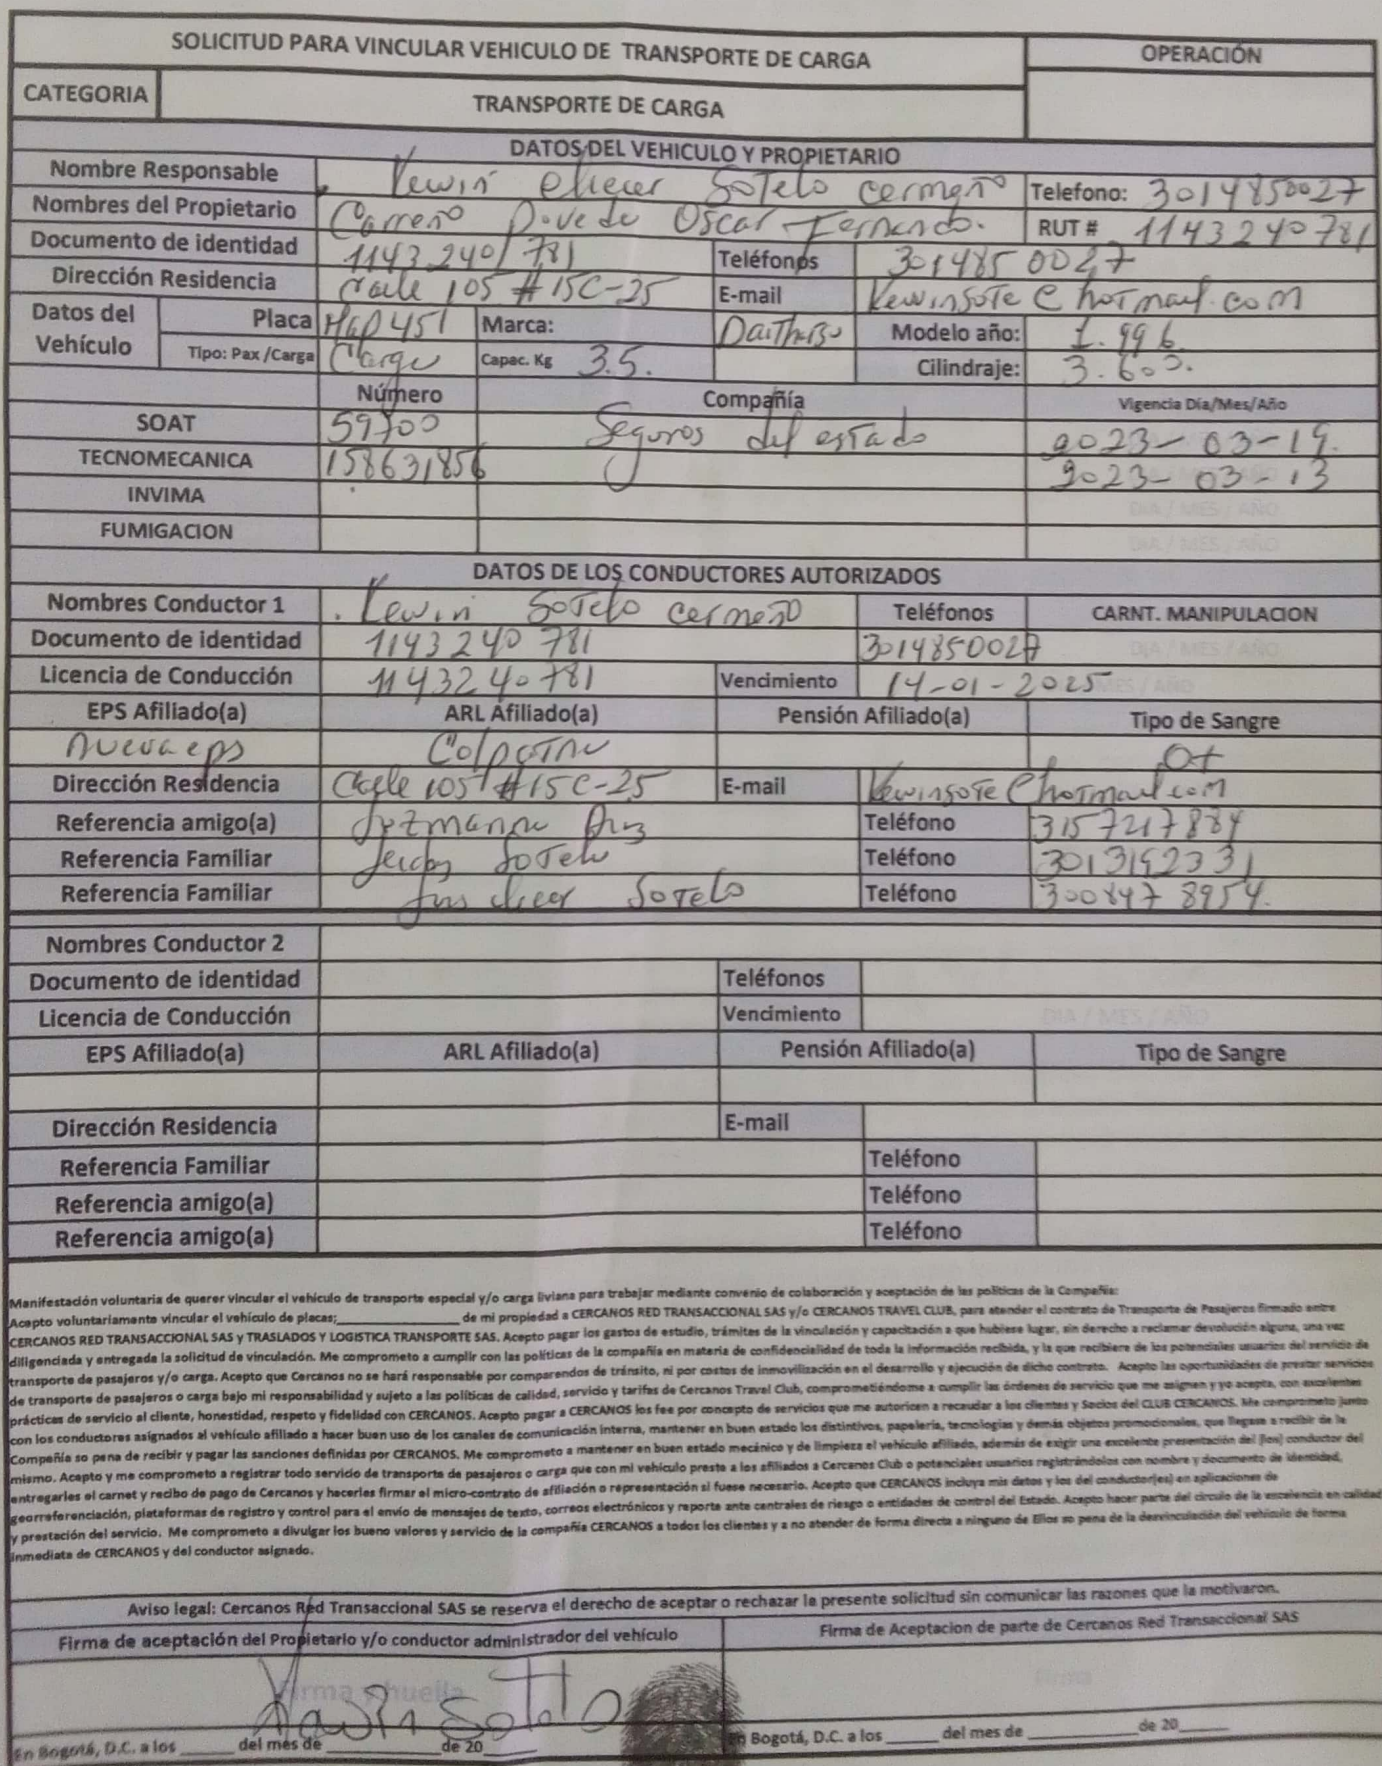 SOLICITUD PARA VINCULAR VEHICULO DE TRANSPORTE DE CARGA OPERACIÓN
CATEGORIA TRANSPORTE DE CARGA
DATOS DEL VEHICULO Y PROPIETARIO
Nombre Responsable Kewin eliecer Sotelo cermeño Telefono: 3014850027
Nombres del Propietario Carreño Oscar Fernando. RUT # 1143240781
Documento de identidad 1143240781 Teléfonos 3014850027
Dirección Residencia Calle 105 #15C-25 E-mail Kewinsote@hotmail.com
Datos del Vehículo Placa Marca: Modelo año: 1.996
Tipo: Pax /Carga Carga Capac. Kg 3.5. Cilindraje: 3.600.
Número Compañía Vigencia Día/Mes/Año
SOAT 59700 Seguros del estado 2023-03-19.
TECNOMECANICA 158631856 2023-03-13
INVIMA DIA / MES / AÑO
FUMIGACION DIA / MES / AÑO
DATOS DE LOS CONDUCTORES AUTORIZADOS
Nombres Conductor 1 Kewin Sotelo cermeño Teléfonos CARNT. MANIPULACION
Documento de identidad 1143240781 3014850027 DIA / MES / AÑO
Licencia de Conducción 1143240781 Vencimiento 14-01-2025
EPS Afiliado(a) ARL Afiliado(a) Pensión Afiliado(a) Tipo de Sangre
nueva eps Colpatria O+
Dirección Residencia Calle 105 #15C-25 E-mail Kewinsote@hotmail.com
Referencia amigo(a) Teléfono 3157217884
Referencia Familiar Sotelo Teléfono 3013192331
Referencia Familiar Sotelo Teléfono 3008478954.
Nombres Conductor 2
Documento de identidad Teléfonos
Licencia de Conducción Vencimiento DIA / MES / AÑO
EPS Afiliado(a) ARL Afiliado(a) Pensión Afiliado(a) Tipo de Sangre
Dirección Residencia E-mail
Referencia Familiar Teléfono
Referencia amigo(a) Teléfono
Referencia amigo(a) Teléfono
Manifestación voluntaria de querer vincular el vehículo de transporte especial y/o carga liviana para trabajar mediante convenio de colaboración y aceptación de las políticas de la Compañía:
Acepto voluntariamente vincular el vehículo de placas;______________ de mi propiedad a CERCANOS RED TRANSACCIONAL SAS y/o CERCANOS TRAVEL CLUB, para atender el contrato de Transporte de Pasajeros firmado entre
CERCANOS RED TRANSACCIONAL SAS y TRASLADOS Y LOGISTICA TRANSPORTE SAS. Acepto pagar los gastos de estudio, trámites de la vinculación y capacitación a que hubiese lugar, sin derecho a reclamar devolución alguna, una vez
diligenciada y entregada la solicitud de vinculación. Me comprometo a cumplir con las políticas de la compañía en materia de confidencialidad de toda la información recibida, y la que recibiere de los potenciales usuarios del servicio de
transporte de pasajeros y/o carga. Acepto que Cercanos no se hará responsable por comparendos de tránsito, ni por costos de inmovilización en el desarrollo y ejecución de dicho contrato. Acepto las oportunidades de prestar servicios
de transporte de pasajeros o carga bajo mi responsabilidad y sujeto a las políticas de calidad, servicio y tarifas de Cercanos Travel Club, comprometiéndome a cumplir las órdenes de servicio que me asignen y yo acepta, con excelentes
prácticas de servicio al cliente, honestidad, respeto y fidelidad con CERCANOS. Acepto pagar a CERCANOS los fee por concepto de servicios que me autoricen a recaudar a los clientes y Socios del CLUB CERCANOS. Me comprometo junto
con los conductores asignados al vehículo afiliado a hacer buen uso de los canales de comunicación interna, mantener en buen estado los distintivos, papelería, tecnologías y demás objetos promocionales, que llegase a recibir de la
Compañía so pena de recibir y pagar las sanciones definidas por CERCANOS. Me comprometo a mantener en buen estado mecánico y de limpieza el vehículo afiliado, además de exigir una excelente presentación del (los) conductor del
mismo. Acepto y me comprometo a registrar todo servicio de transporte de pasajeros o carga que con mi vehículo preste a los afiliados a Cercanos Club o potenciales usuarios registrándolos con nombre y documento de identidad,
entregarles el carnet y recibo de pago de Cercanos y hacerles firmar el micro-contrato de afiliación o representación si fuese necesario. Acepto que CERCANOS incluya mis datos y los del conductor(es) en aplicaciones de
georreferenciación, plataformas de registro y control para el envío de mensajes de texto, correos electrónicos y reporte ante centrales de riesgo o entidades de control del Estado. Acepto hacer parte del círculo de la excelencia en calidad
y prestación del servicio. Me comprometo a divulgar los bueno valores y servicio de la compañía CERCANOS a todos los clientes y a no atender de forma directa a ninguno de Ellos so pena de la desvinculación del vehículo de forma
inmediata de CERCANOS y del conductor asignado.
Aviso legal: Cercanos Red Transaccional SAS se reserva el derecho de aceptar o rechazar la presente solicitud sin comunicar las razones que la motivaron.
Firma de aceptación del Propietario y/o conductor administrador del vehículo Firma de Aceptacion de parte de Cercanos Red Transaccional SAS
Firma y huella Firma
Kewin Sotelo
En Bogotá, D.C. a los ______ del mes de ____________ de 20______ En Bogotá, D.C. a los ______ del mes de ____________ de 20______